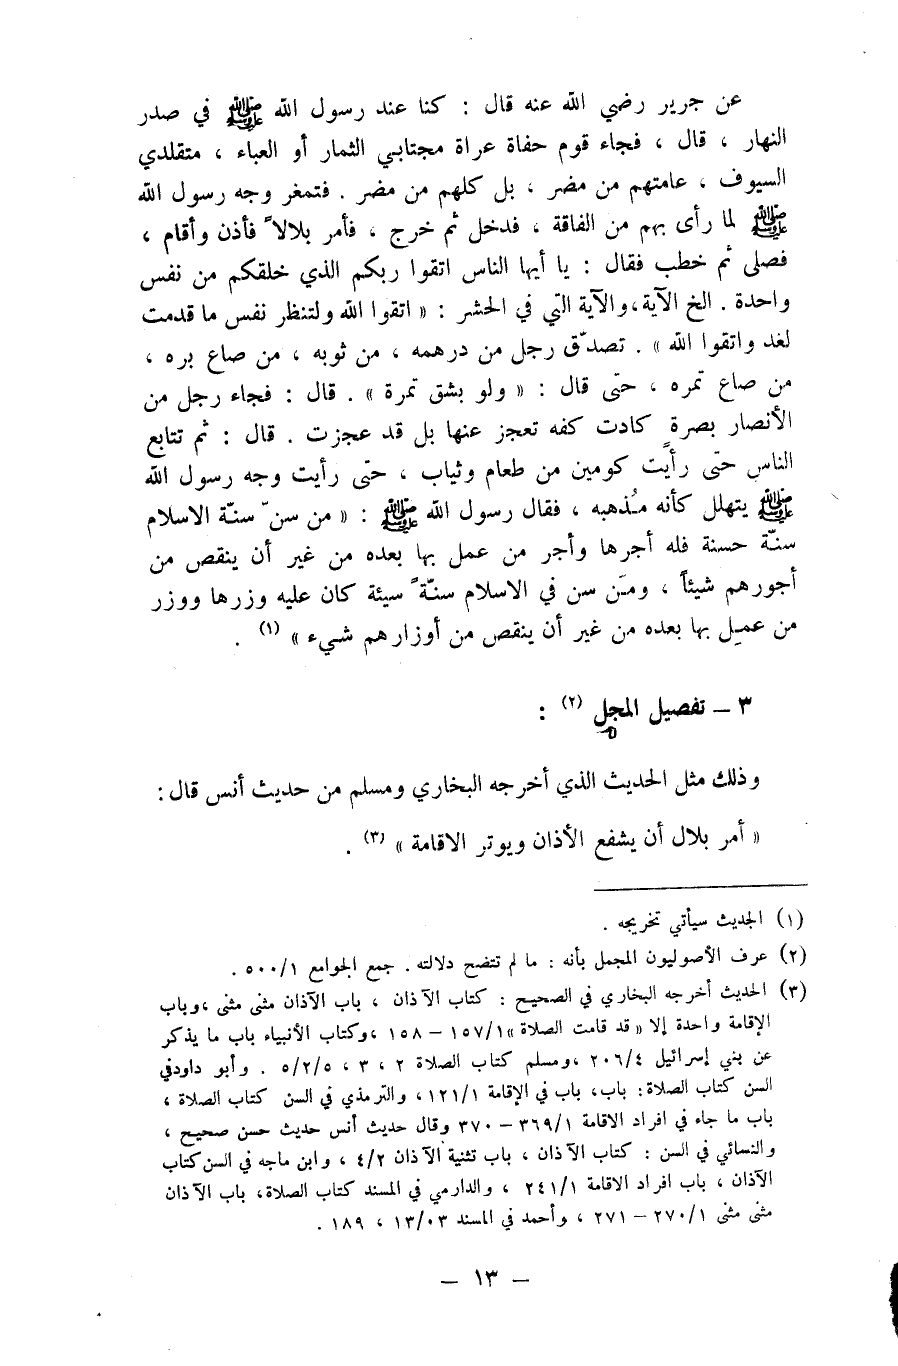 عن جرير رضي الله عنه قال : كنا عند رسول الله ﷺ في صدر
النهار ، قال ، فجاء قوم حفاة عراة مجتابي الثمار أو العباء ، متقلدي
السيوف ، عامتهم من مضر ، بل كلهم من مضر . فتمغر وجه رسول الله
ﷺ لما رأى بهم من الفاقة ، فدخل ثم خرج ، فأمر بلالاً فأذن وأقام ،
فصلى ثم خطب فقال : يا أيها الناس اتقوا ربكم الذي خلقكم من نفس
واحدة . الخ الآية ، والآية التي في الحشر : « اتقوا الله ولتنظر نفس ما قدمت
لغد واتقوا الله » . تصدّق رجل من درهمه ، من ثوبه ، من صاع بره ،
من صاع تمره ، حتى قال : « ولو بشق تمرة » . قال : فجاء رجل من
الأنصار بصرة كادت كفه تعجز عنها بل قد عجزت . قال : ثم تتابع
الناس حتى رأيت كومين من طعام وثياب ، حتى رأيت وجه رسول الله
ﷺ يتهلل كأنه مُذهبه ، فقال رسول الله ﷺ : « من سنّ سنّة الاسلام
سنّة حسنة فله أجرها وأجر من عمل بها بعده من غير أن ينقص من
أجورهم شيئاً ، ومَن سن في الاسلام سنّةً سيئة كان عليه وزرها ووزر
من عمِل بها بعده من غير أن ينقص من أوزارهم شيء » (١) .
٣ – تفصيل المجمل (٢) :
وذلك مثل الحديث الذي أخرجه البخاري ومسلم من حديث أنس قال :
« أمر بلال أن يشفع الأذان ويوتر الاقامة » (٣) .
(١) الحديث سيأتي تخريجه .
(٢) عرف الأصوليون المجمل بأنه : ما لم تتضح دلالته . جمع الجوامع ٥٠٠/١ .
(٣) الحديث أخرجه البخاري في الصحيح : كتاب الآذان ، باب الآذان مثنى مثنى ، وباب
الإقامة واحدة إلا « قد قامت الصلاة » ١٥٧/١ – ١٥٨ ، وكتاب الأنبياء باب ما يذكر
عن بني إسرائيل ٢٠٦/٤ ، ومسلم كتاب الصلاة ٢ ، ٣ ، ٥/٢/٥ . وأبو داود في
السن كتاب الصلاة : باب ، باب في الإقامة ١٢١/١ ، والترمذي في السن كتاب الصلاة ،
باب ما جاء في افراد الاقامة ٣٦٩/١ – ٣٧٠ وقال حديث أنس حديث حسن صحيح ،
والنسائي في السن : كتاب الآذان ، باب تثنية الآذان ٤/٢ ، وابن ماجه في السن كتاب
الآذان ، باب افراد الاقامة ٢٤١/١ ، والدارمي في المسند كتاب الصلاة ، باب الآذان
مثنى مثنى ٢٧٠/١ – ٢٧١ ، وأحمد في المسند ١٣/٠٣ ، ١٨٩ .
– ١٣ –